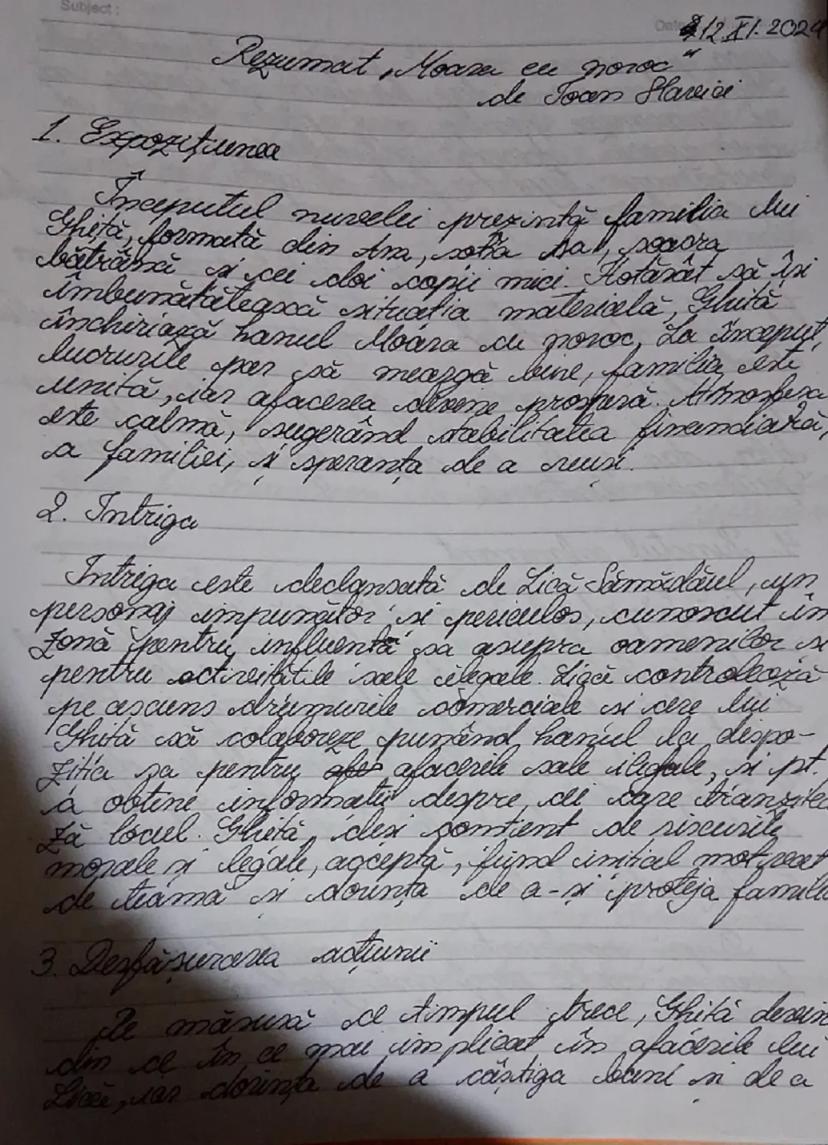 Subject :
12 XI. 2024
Rezumat „Moara cu noroc"
de Ioan Slavici
1. Expozițiunea
Începutul nuvelei prezintă familia lui
Ghiță, formată din Ana, soția sa, soacra
bătrână și cei doi copii mici. Hotărât să își
îmbunătățească situația materială, Ghiță
închiriază hanul Moara cu noroc. La început,
lucrurile par să meargă bine, familia este
unită, iar afacerea devine prosperă. Atmosfera
este calmă, sugerând stabilitatea financiară,
a familiei, și speranța de a reuși.
2. Intriga
Intriga este declanșată de Lică Sămădăul, un
personaj impunător și periculos, cunoscut în
zonă pentru influența sa asupra oamenilor și
pentru activitățile sale ilegale. Lică controlează
pe ascuns drumurile comerciale și cere lui
Ghiță să colaboreze punând hanul la dispo-
ziția sa pentru afacerile sale ilegale, și pt.
a obține informații despre cei care tranzitea-
ză locul. Ghiță, deși conștient de riscurile
morale și legale, acceptă, fiind inițial motivat
de teamă și dorința de a-și proteja familia
3. Desfășurarea acțiunii
Pe măsură ce timpul trece, Ghiță devin
din ce în ce mai implicat în afacerile lui
Lică, iar dorința de a câștiga bani și de a